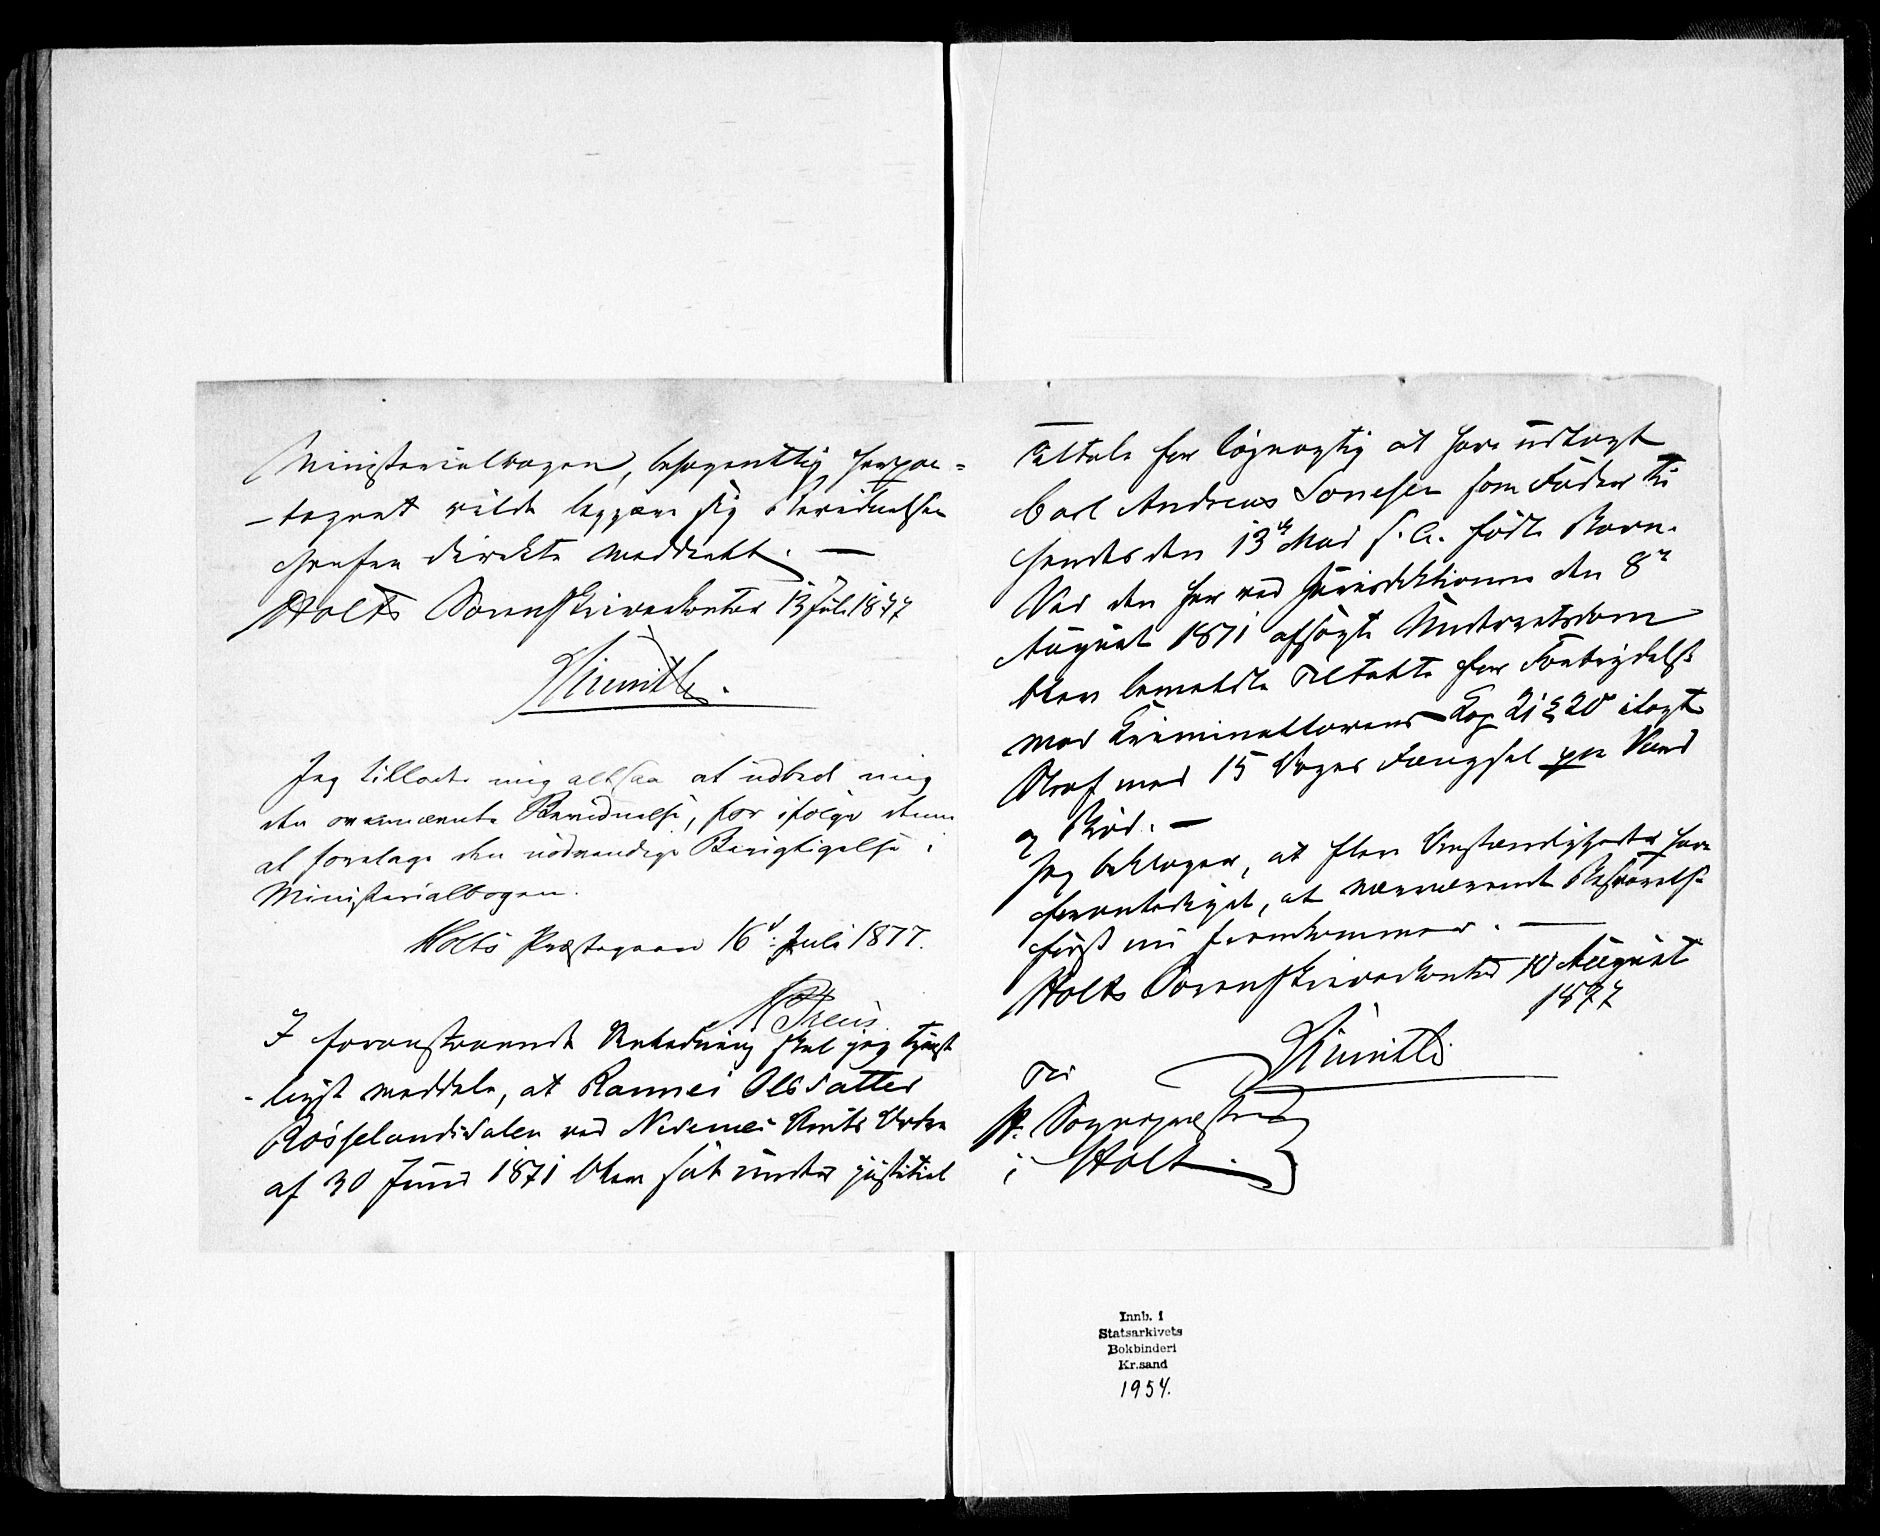 Ministerialbogen, hvorom
-tegnet vilde
direkte meddeelt. —
Holts Sorenskriverkontor 13 Juli 1877
Jeg tillader mig altsaa at udbede mig
den ovennævnte Bevidnelse, for ifølge denne
at foretage den nødvendige Berigtigelse i
Ministerialbogen.
Holts Præstegaard 16d: Juli 1877.
I foranstaaende Anledning skal jeg tjenst
-ligst meddele, at Rannei Olsdatter
Røsselandsdalen ved Nedenes Amts Ordre
af 30 Juni 1871 blev sat under justitiel
Tiltale for løgnagtig at have udlagt
Carl Andreas Tonesen som Fader til
hendes den 13de Mai s. A. fødte Barn.
Ved den her ved Jurisdiktionen den 8de
August 1871 afsagte Underretsdom
blev bemeldte Tiltalte for Forbrydelse
mod Kriminallovens Kap 21 § 20 ilagt
Straf med 15 Dages Fængsel paa Vand
og Brød. —
Jeg beklager, at flere Omstændigheder have
foranlediget, at nærværende Besvarelse
først nu fremkommer. —
Holts Sorenskriverkontor 10 August
1877
Til
Hr. Sognepræsten
i Holt.
Innb. i
Statsarkivets
Bokbinderi
Kr.sand
1954.